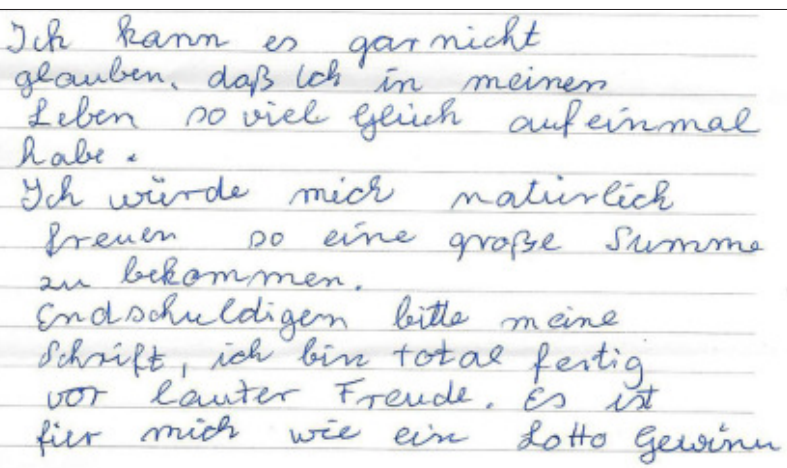 Ich kann es gar nicht
glauben, daß Ich in meinen
Leben so viel Glück auf einmal
habe.
Ich würde mich natürlich
freuen so eine große Summe
zu bekommen.
Endschuldigen bitte meine
Schrift, ich bin total fertig
vor lauter Freude. Es ist
für mich wie ein Lotto Gewinn